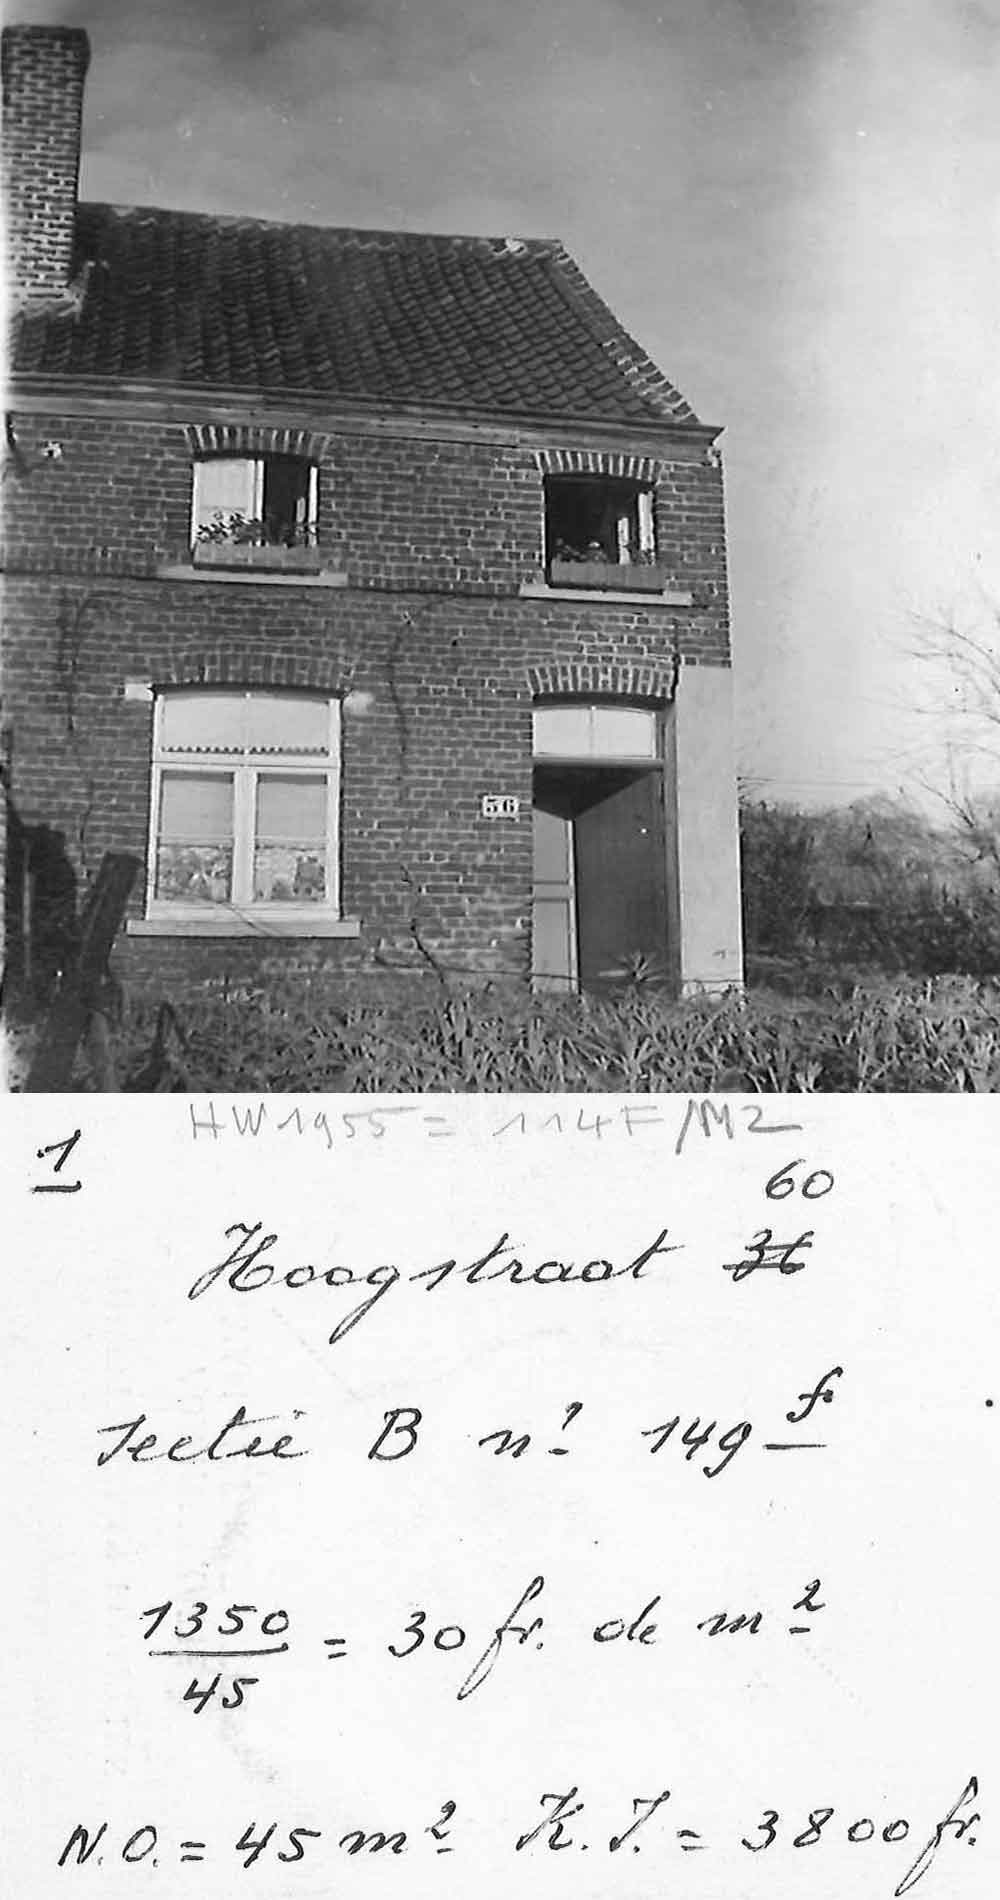 56
HW1955 = 114F/M2
1
60
Hoogstraat 36
Sectie B nº 149 f
1350
45
= 30 fr. de m²
N.O. = 45 m² K.I. = 3800 fr.